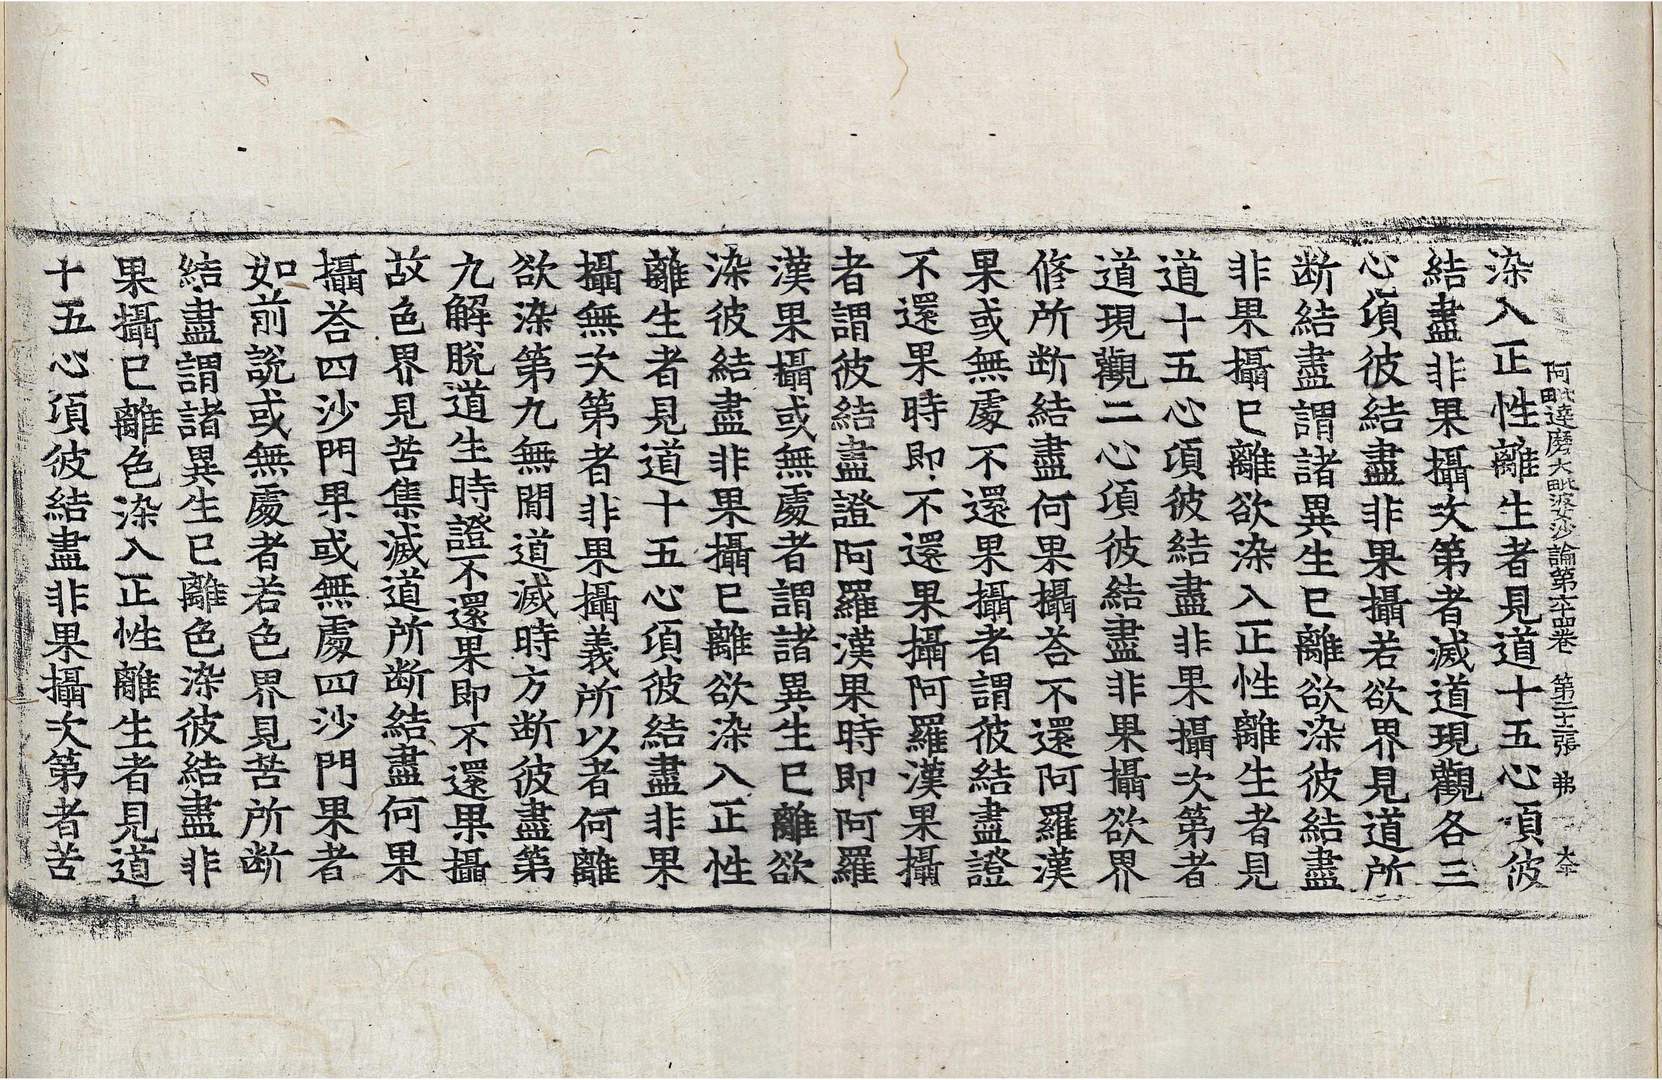 阿毗達磨大毗婆沙論第六十四卷 第二十二張 弗
染入正性離生者見道十五心項彼
結盡非果攝次第者滅道現觀各三
心項彼結盡非果攝若欲界見道所
断結盡謂諸異生已離欲染彼結盡
非果攝已離欲染入正性離生者見
道十五心項彼結盡非果攝次第者
道現觀二心項彼結盡非果攝欲界
修所断結盡何果攝荅不還阿羅漢
果或無處不還果攝者謂彼結盡證
不還果時即不還果攝阿羅漢果攝
者謂彼結盡證阿羅漢果時即阿羅
漢果攝或無處者謂諸異生已離欲
染彼結盡非果攝已離欲染入正性
離生者見道十五心項彼結盡非果
攝無次第者非果攝義所以者何離
欲染第九無間道滅時方断彼盡第
九解脫道生時證不還果即不還果攝
故色界見苦集滅道所断結盡何果
攝荅四沙門果或無處四沙門果者
如前說或無處者若色界見苦所断
結盡謂諸異生已離色染彼結盡非
果攝已離色染入正性離生者見道
十五心項彼結盡非果攝次第者苦